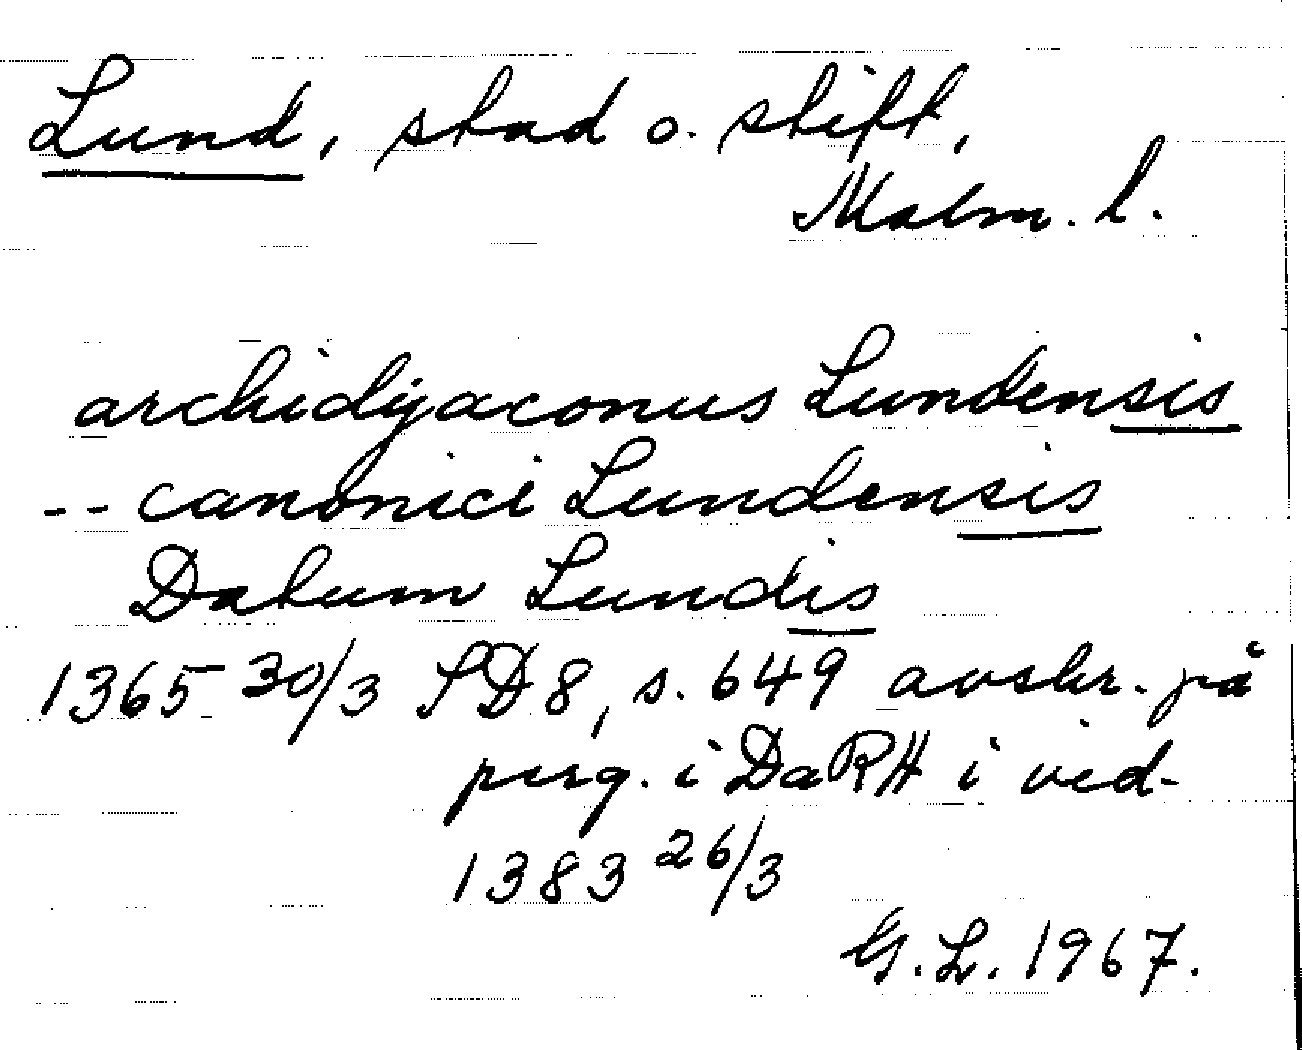 Lund, stad o. stift,
Malm. l.
archidyaconus Lundensis
-- canonici Lundensis
Datum Lundis
1365 30/3 SD 8, s. 649 avskr. på
perg. i DaRH i vid-
1383 26/3
G. L. 1967.